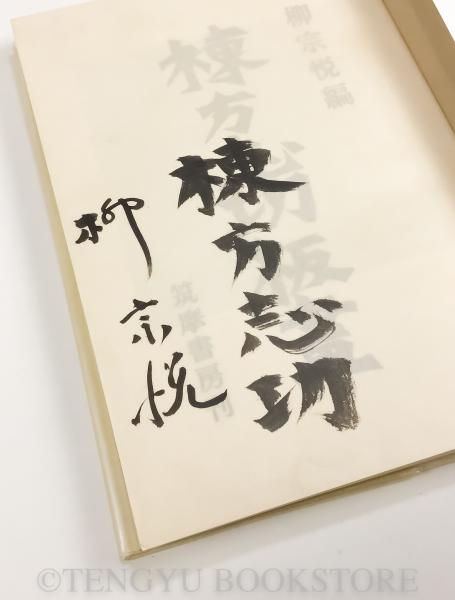 柳宗悦編
棟方功板
棟方志功
筑摩書房刊
柳宗悦
©TENGYU BOOKSTORE